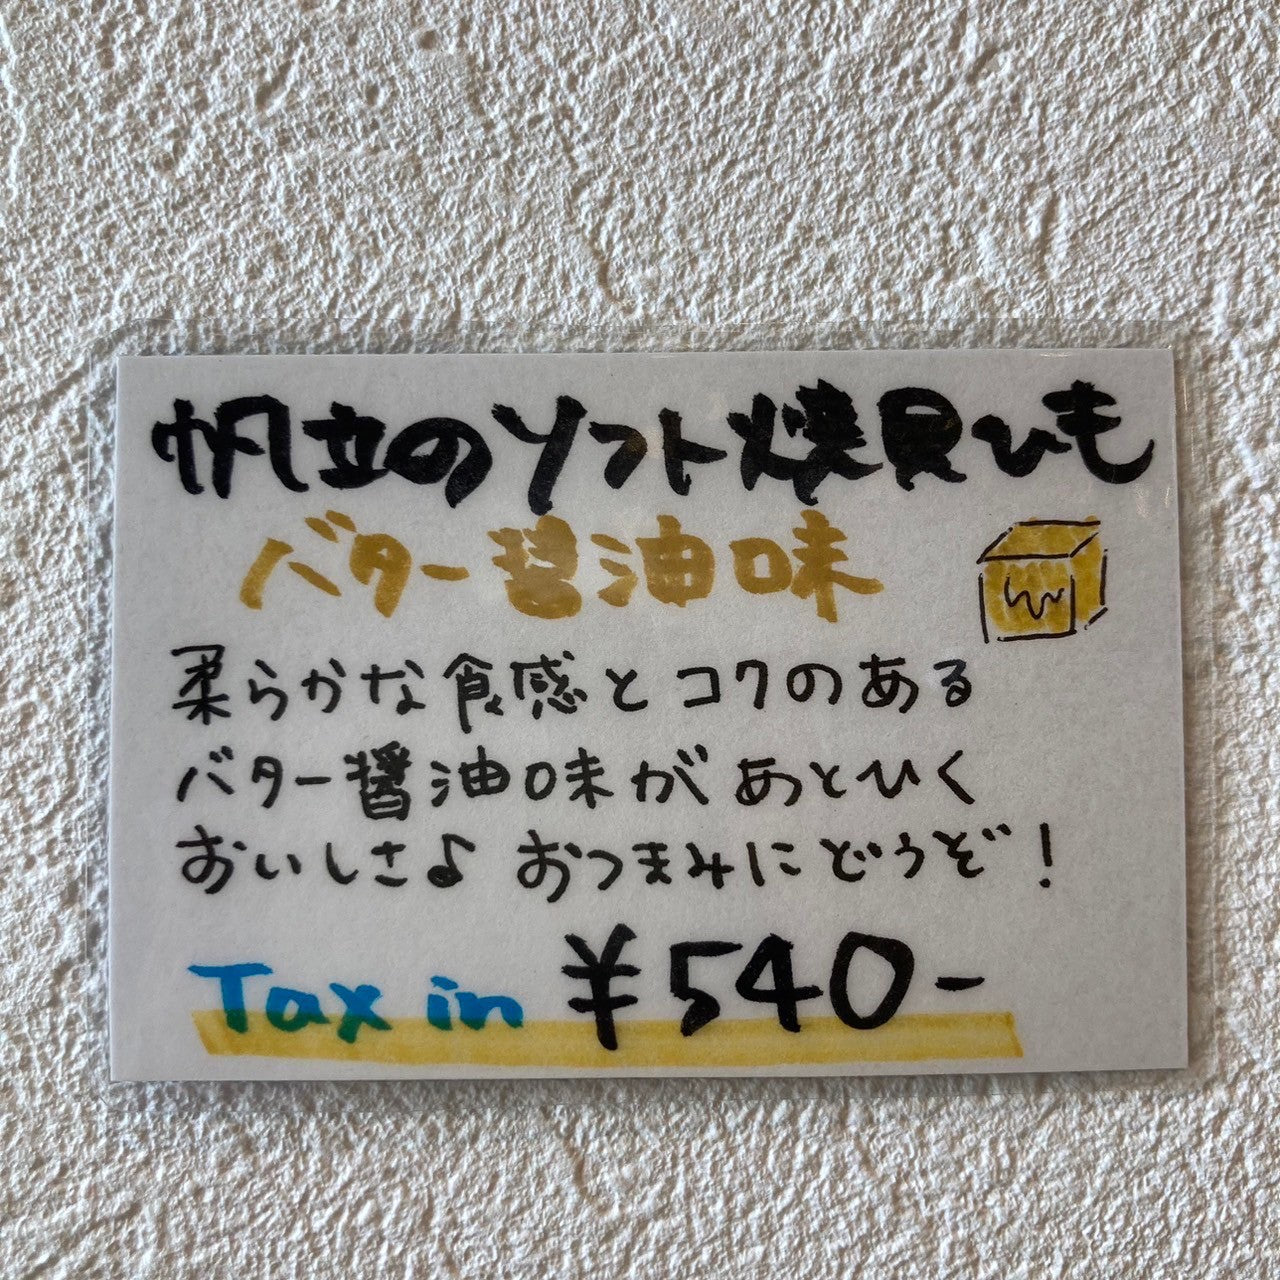 帆立のソフト焼貝ひも
バター醤油味
柔らかな食感とコクのある
バター醤油味があとひく
おいしさ♪ おつまみにどうぞ！
Tax in ¥540-